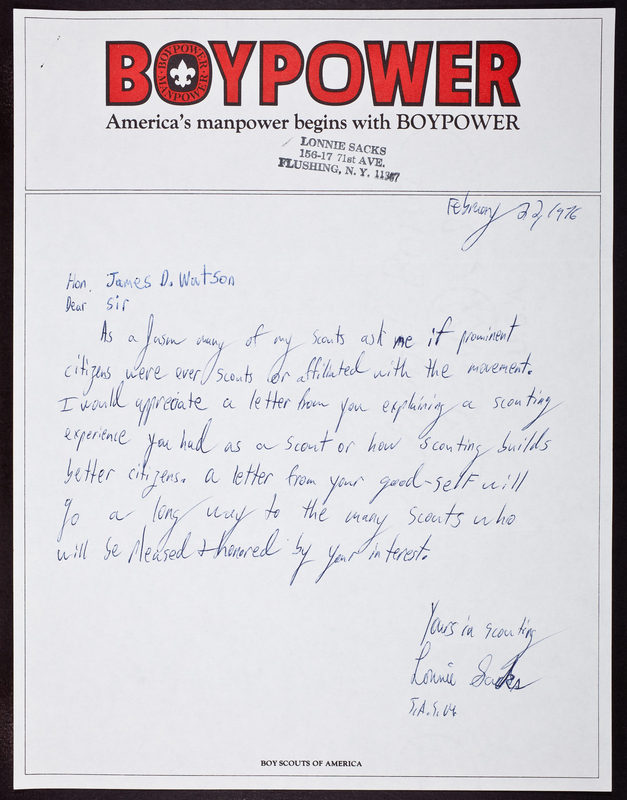 BOYPOWER
BOYPOWER · MANPOWER
America's manpower begins with BOYPOWER
LONNIE SACKS
156-17 71st AVE.
FLUSHING, N. Y. 11367
February 22, 1976
Hon. James D. Watson
Dear Sir
As a many of my scouts ask me if prominent
citizens were ever scouts or affiliated with the movement.
I would appreciate a letter from you explaining a scouting
experience you had as a scout or how scouting builds
better citizens. a letter from your good-self will
go a long way to the many scouts who
will be pleased + honored by your interest.
Yours in scouting
Lonnie Sacks
BOY SCOUTS OF AMERICA